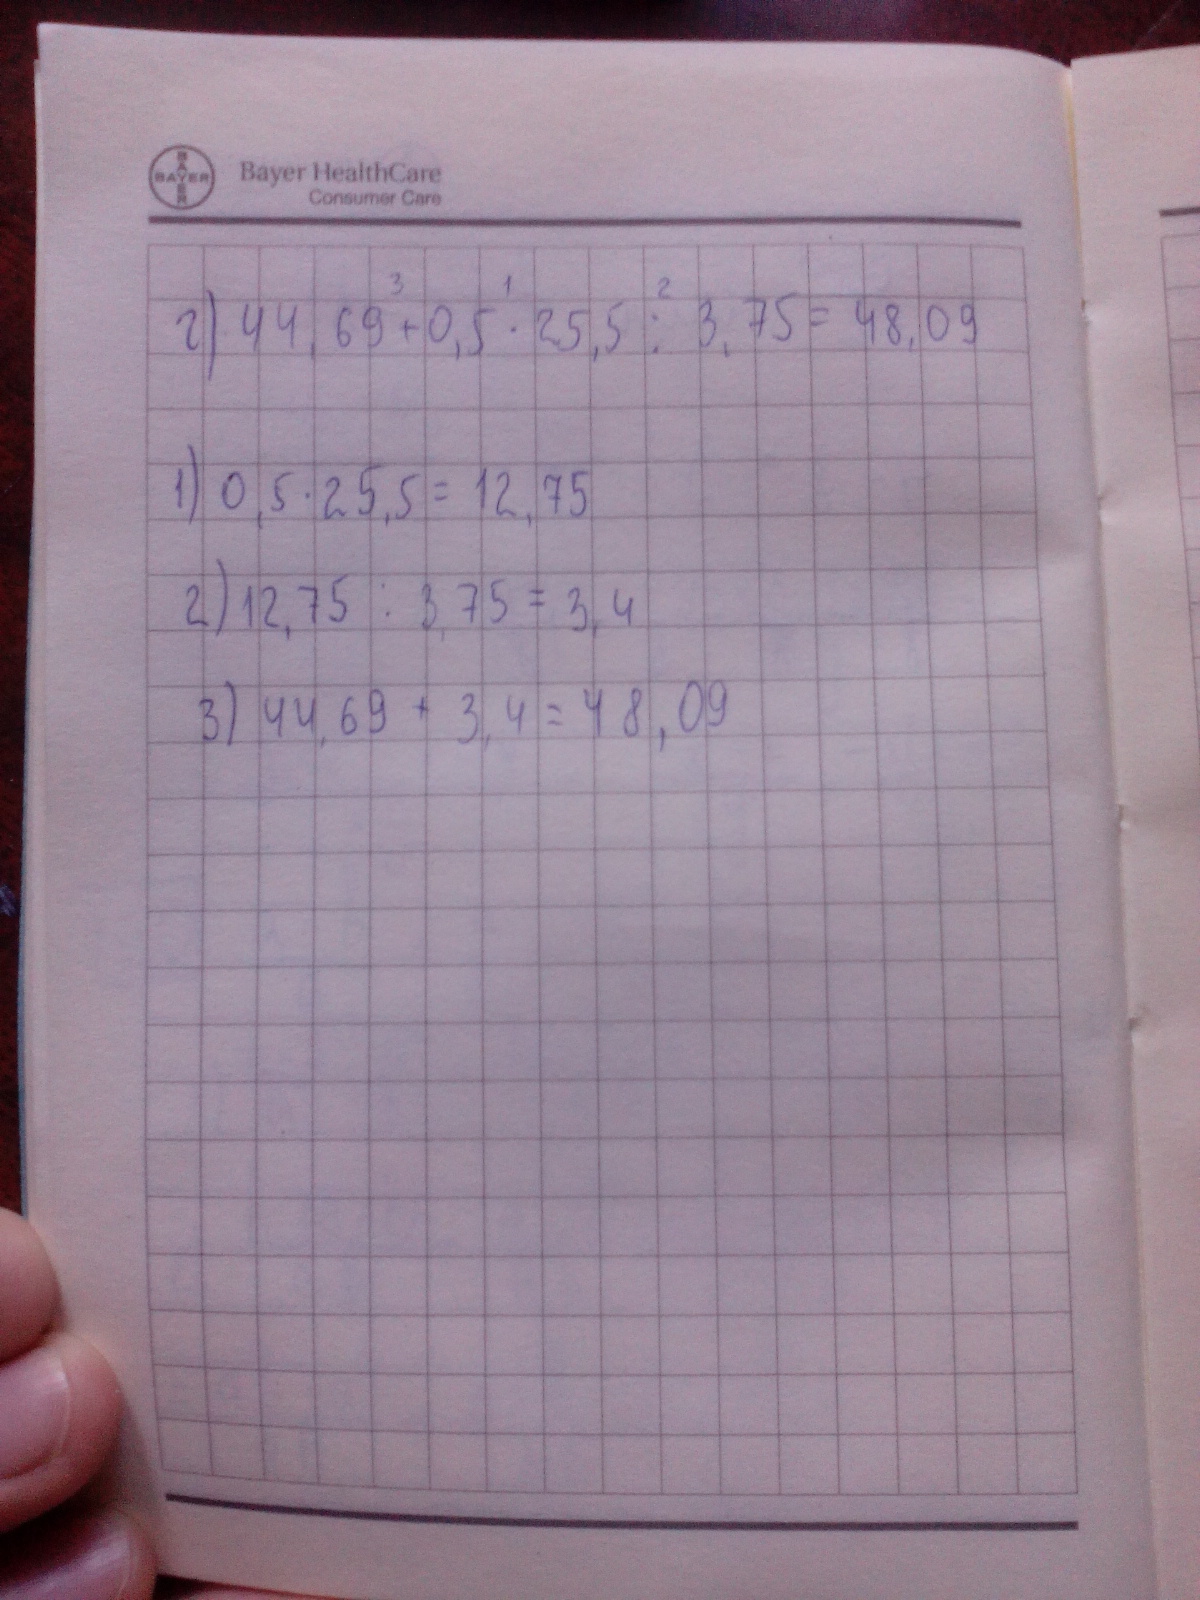 BAYER
BAYER
Bayer HealthCare
Consumer Care
3 1 2
г) 44,69+0,5·25,5 : 3,75= 48,09
1) 0,5·25,5= 12,75
2) 12,75 : 3,75 = 3,4
3) 44,69 + 3,4 = 48,09